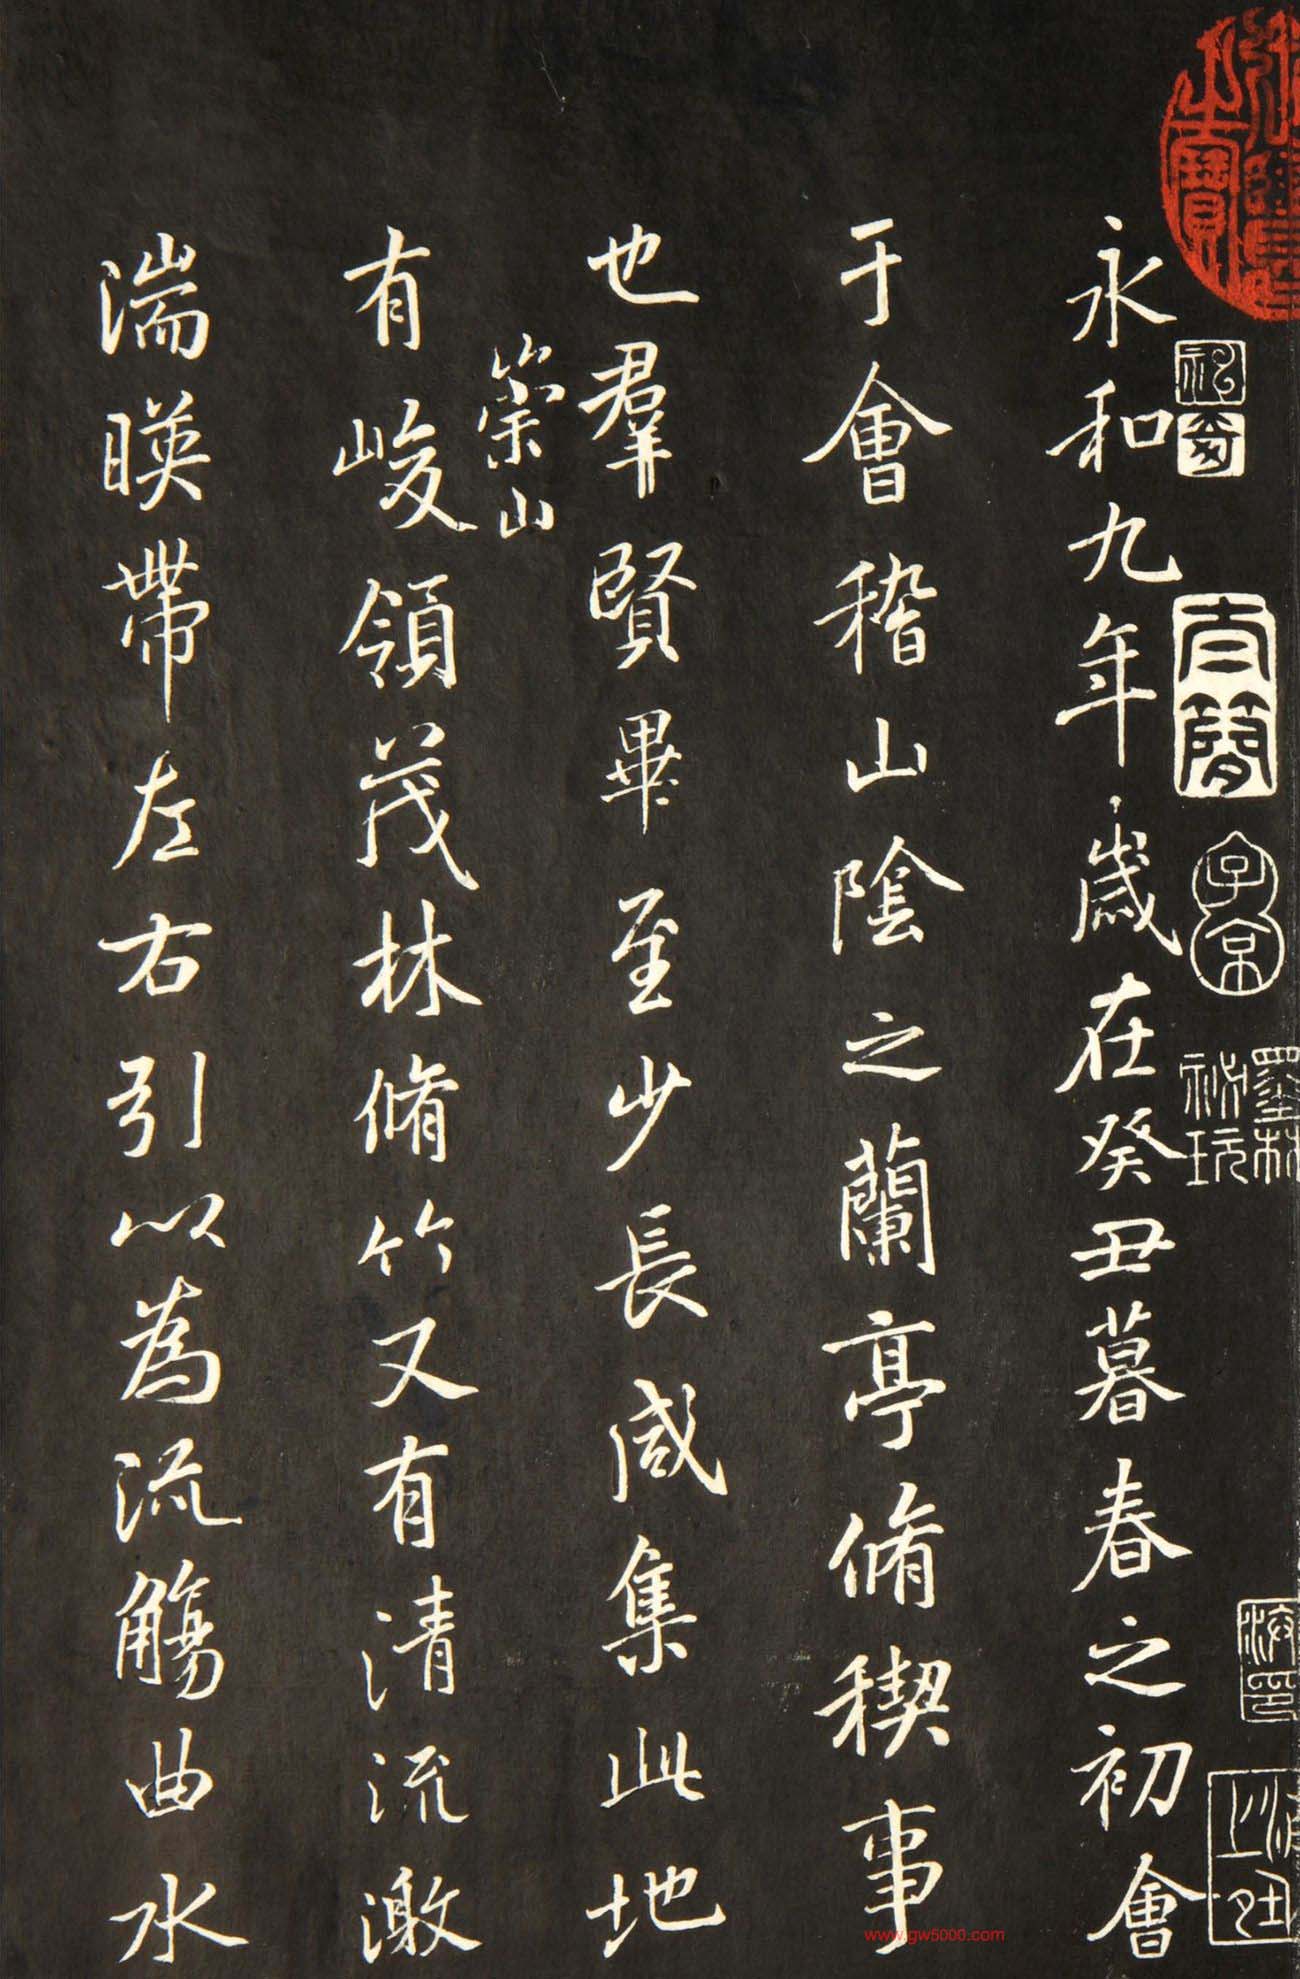 永和九年歲在癸丑暮春之初會
于會稽山陰之蘭亭脩稧事
也羣賢畢至少長咸集此地
崇山
有峻領茂林脩竹又有清流激
湍暎帶左右引以為流觴曲水
子京
墨林
祕玩
www.gw5000.com